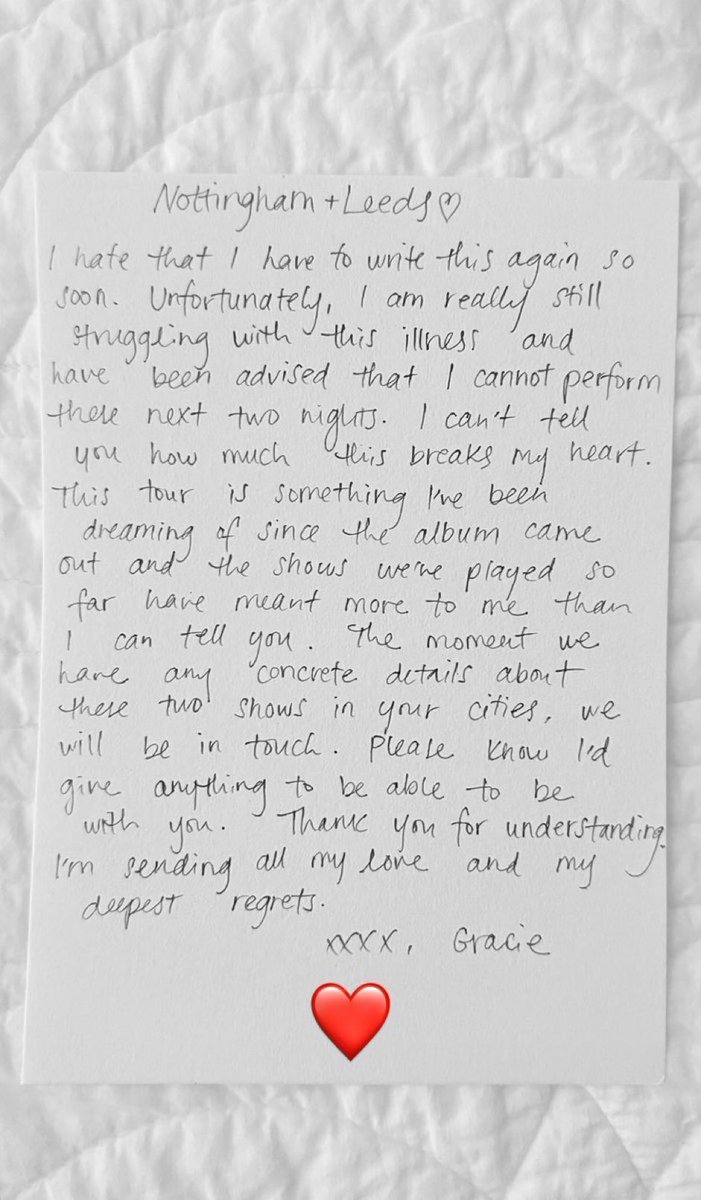 Nottingham + Leeds ♡
I hate that I have to write this again so
soon. Unfortunately, I am really still
struggling with this illness and
have been advised that I cannot perform
these next two nights. I can't tell
you how much this breaks my heart.
This tour is something I've been
dreaming of since the album came
out and the shows we've played so
far have meant more to me than
I can tell you. The moment we
have any concrete details about
these two shows in your cities, we
will be in touch. Please know I'd
give anything to be able to be
with you. Thank you for understanding.
I'm sending all my love and my
deepest regrets.
xxxx, Gracie